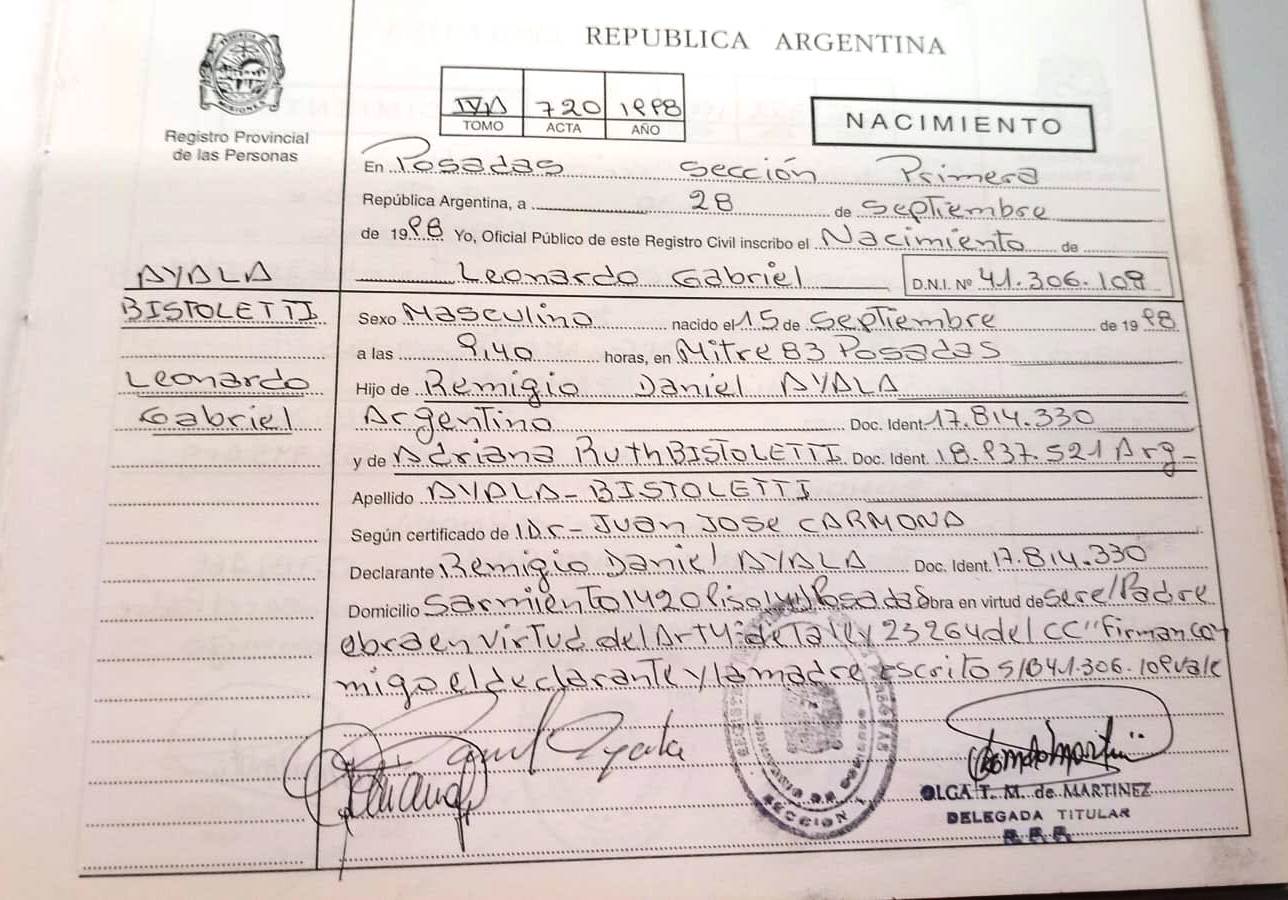 REPUBLICA ARGENTINA
IVA 720 1998
TOMO ACTA AÑO
NACIMIENTO
Registro Provincial
de las Personas
En Posadas Sección Primera
República Argentina, a 28 de Septiembre
de 1998 Yo, Oficial Público de este Registro Civil inscribo el Nacimiento de
AYALA Leonardo Gabriel D.N.I. Nº 41.306.109
BISTOLETTI Sexo Masculino nacido el 15 de Septiembre de 1998
a las 9,40 horas, en Mitre 83 Posadas
Leonardo Hijo de Remigio Daniel AYALA
Gabriel Argentino Doc. Ident. 17.814.330
y de Adriana Ruth BISTOLETTI Doc. Ident. 18.937.521 Arg-
Apellido AYALA-BISTOLETTI
Según certificado de Dr- Juan JOSE CARMONA
Declarante Remigio Daniel AYALA Doc. Ident. 17.814.330
Domicilio Sarmiento 1420 Piso Posadas Obra en virtud de Ser el Padre
obra en virtud del Art 4º de la ley 23264 del CC" Firman con
migo el declarante y la madre Escrito S/B 41.306.109 vale
OLGA T. M. de MARTINEZ
DELEGADA TITULAR
SECCION 1